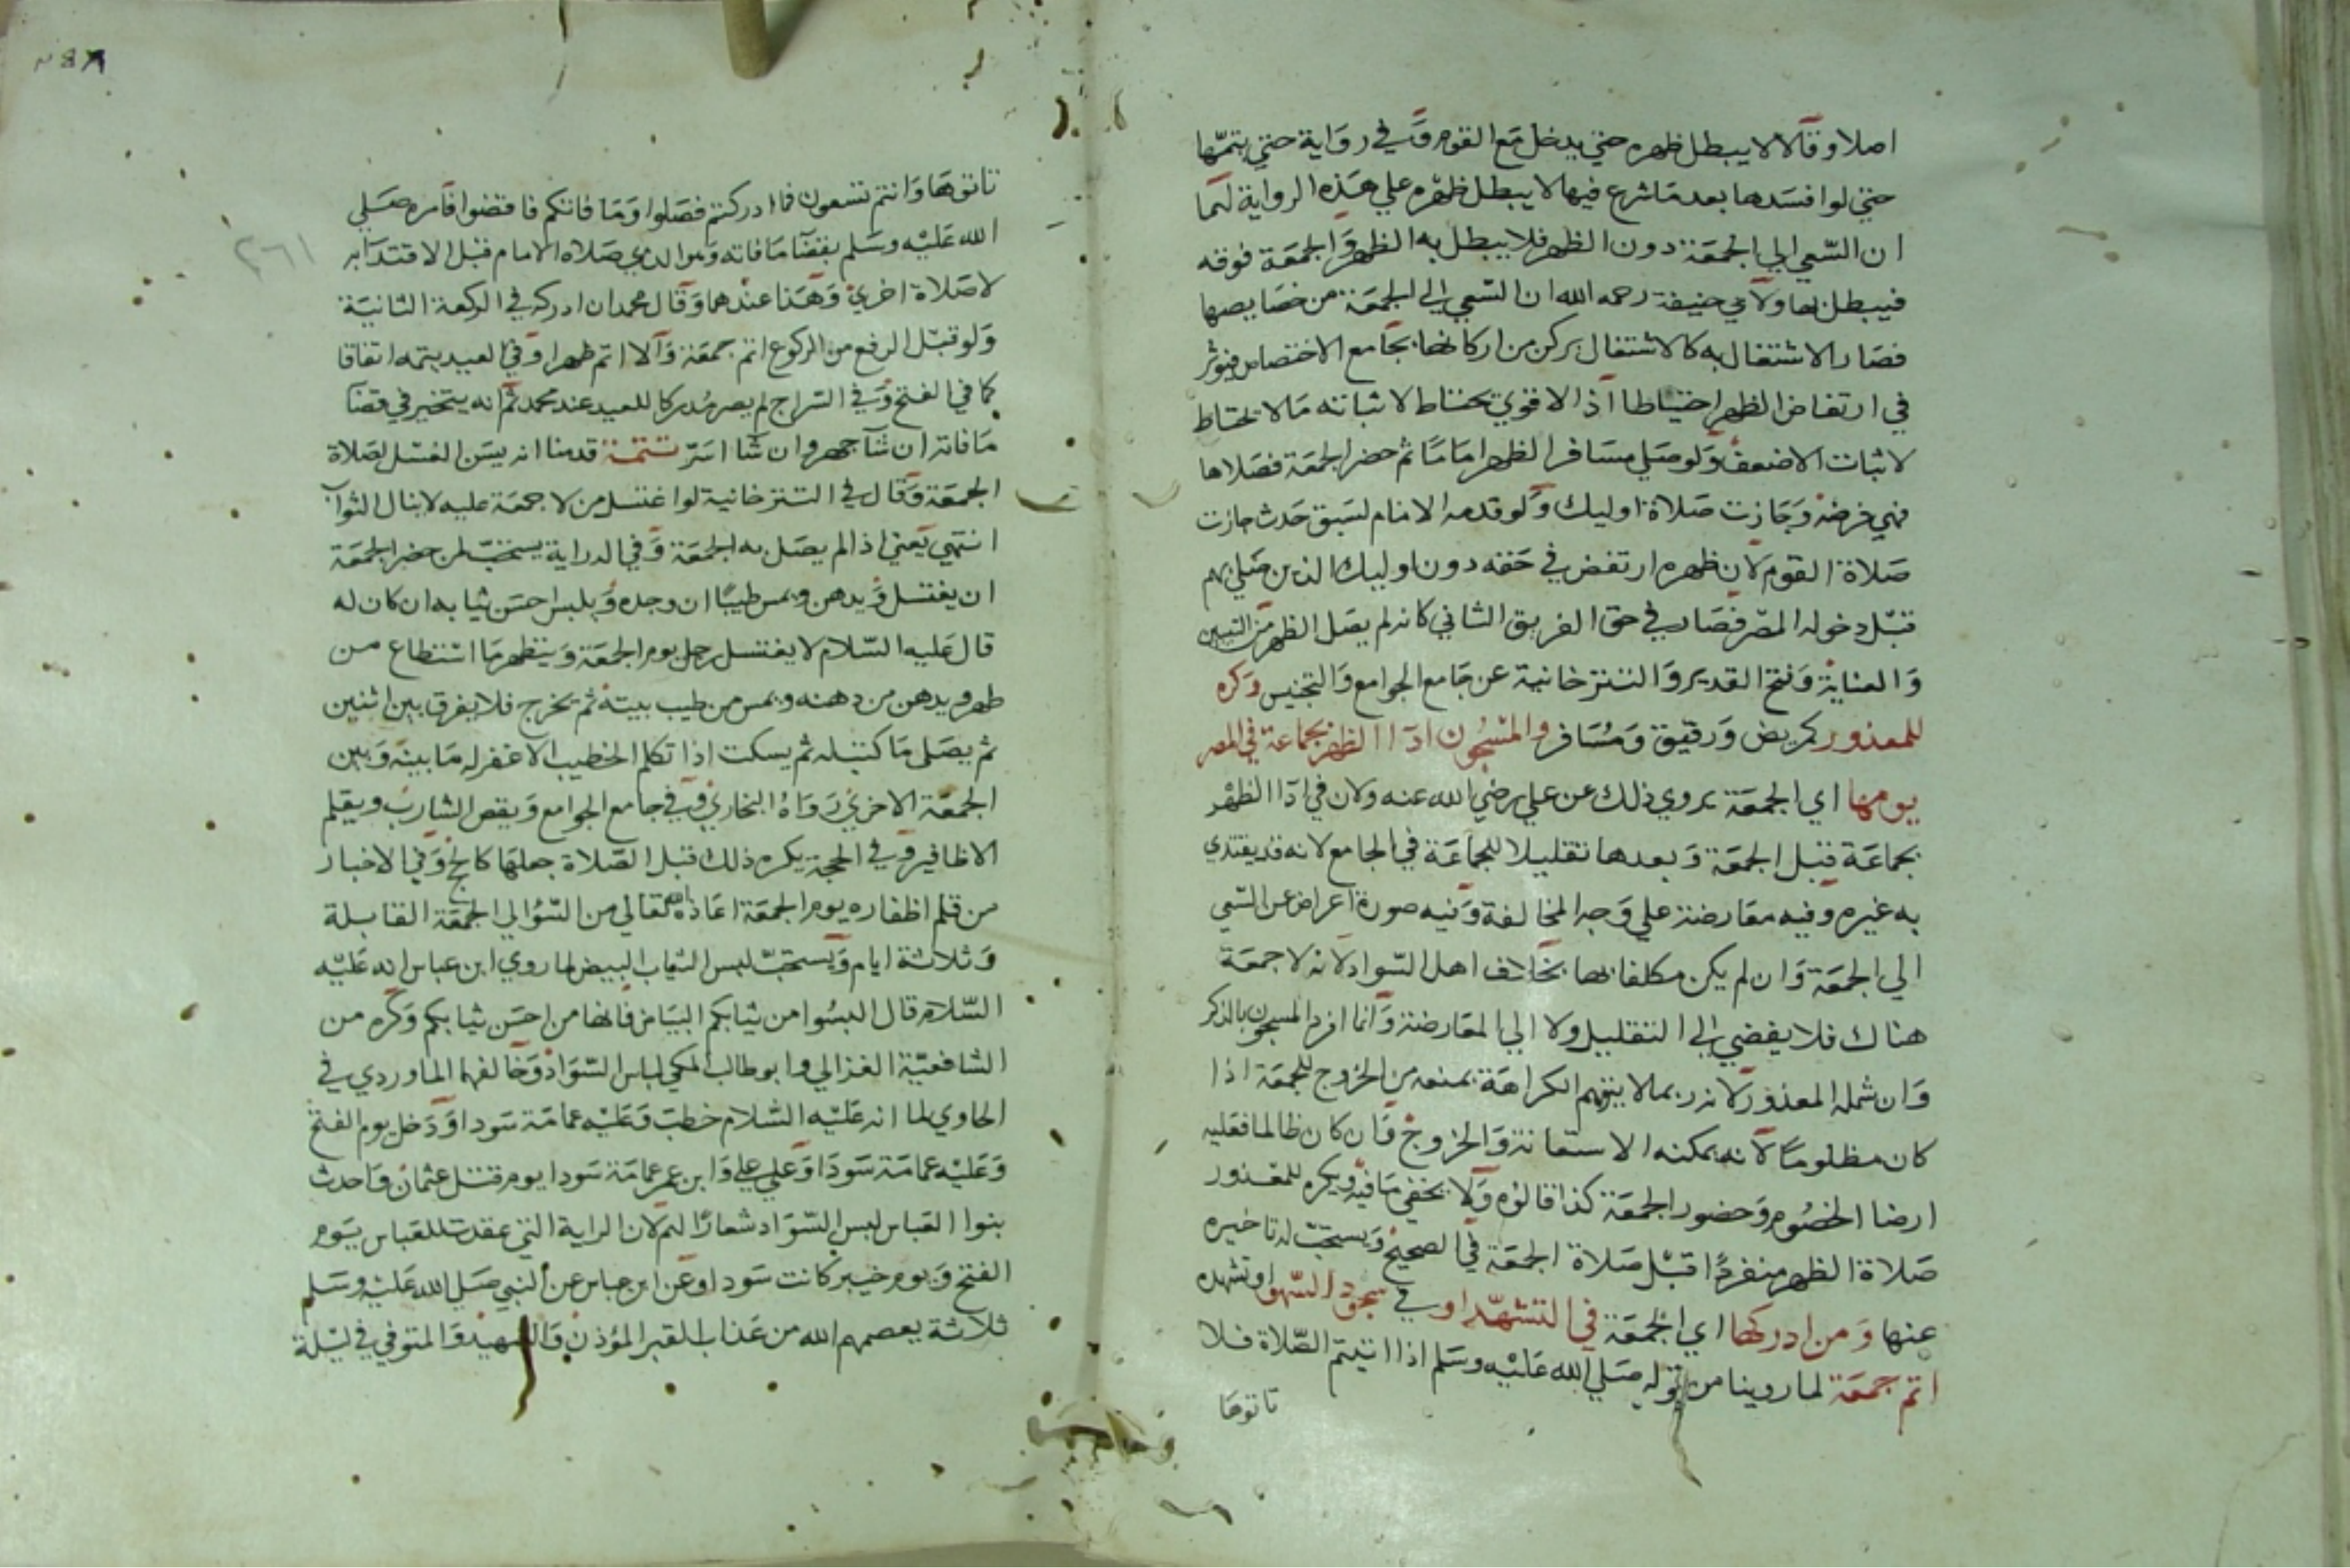 اصلا وقالا لا يبطل ظهره حتي يدخل مع القوم وفي رواية حتي يتمها
حتي لو افسدها بعد ما شرع فيها لا يبطل ظهره علي هذه الرواية لهما
ان السعي الي الجمعة دون الظهر فلا يبطل به الظهر والجمعة فوقه
فيبطل بها ولابي حنيفة رحمه الله ان السعي الي الجمعة من خصايصها
فصار الاشتغال به كالاشتغال بركن من اركانها بجامع الاختصاص فيؤثر
في ارتفاض الظهر احتياطا اذ الاقوي يحتاط لاثباته ما لا يحتاط
لاثبات الاضعف ولو صلي مسافر الظهر اماما ثم حضر الجمعة فصلاها
فهي فرضه وجازت صلاة اوليك ولو قدمه الامام لسبق حدث جازت
صلاة القوم لان ظهره ارتفض في حقه دون اوليك الذين صلي بهم
قبل دخوله المصر فصار في حق الفريق الثاني كانه لم يصل الظهر من التبيين
والعناية وفتح القدير والتتر خانية عن جامع الجوامع والتجنيس وكره
للمعذور كمريض ورقيق ومسافر والمسجون ادا الظهر بجماعة في المصر
يومها اي الجمعة يروي ذلك عن علي رضي الله عنه ولان في ادا الظهر
بجماعة قبل الجمعة وبعدها تقليلا للجماعة في الجامع لانه قد يقتدي
به غيره وفيه معارضة علي وجه المخالفة وفيه صورة اعراض عن السعي
الي الجمعة وان لم يكن مكلفا بها بخلاف اهل السواد لانه لا جمعة
هناك فلا يفضي الي التقليل ولا الي المعارضة وانما افرد المسجون بالذكر
وان شمله المعذور لانه ربما لا يتوهم الكراهة بمنعه من الخروج للجمعة اذا
كان مظلوما لانه يمكنه الاستعانة والخروج وان كان ظالما فعليه
ارضا الخصوم وحضور الجمعة كذا قالوه ولا يخفي ما فيه ويكره للمعذور
صلاة الظهر منفردا قبل صلاة الجمعة في الصحيح ويستحب له تاخيره
عنها ومن ادركها اي الجمعة في التشهد او في سجود السهو او تشهده
اتم جمعة لما روينا من قوله صلي الله عليه وسلم اذا اتيتم الصلاة فلا
تاتوها
٢٦١
تاتوها وانتم تسعون فما ادركتم فصلوا وما فاتكم فاقضوا فامره صلي
الله عليه وسلم بقضا ما فاته وهو الذي صلاه الامام قبل الاقتدا به
لا صلاة اخري وهذا عندهما وقال محمد ان ادركه في الركعة الثانية
ولو قبل الرفع من الركوع اتم جمعة والا اتم ظهرا وفي العيد يتمه اتفاقا
كما في الفتح وفي السراج لم يصر مدركا للعيد عند محمد ثم انه يتخير في قضا
ما فاته ان شا جهر وان شا اسر تتمة قدمنا انه يسن الغسل لصلاة
الجمعة وقال في التتر خانية لو اغتسل من لا جمعة عليه لا ينال الثواب
انتهي يعني اذا لم يصل به الجمعة وفي الدراية يستحب لمن حضر الجمعة
ان يغتسل ويدهن ويمس طيبا ان وجده ويلبس احسن ثيابه ان كان له
قال عليه السلام لا يغتسل رجل يوم الجمعة ويتطهر ما استطاع من
طهر ويدهن من دهنه ويمس من طيب بيته ثم يخرج فلا يفرق بين اثنين
ثم يصلي ما كتب له ثم يسكت اذا تكلم الخطيب الا غفر له ما بينه وبين
الجمعة الاخري رواه البخاري وفي جامع الجوامع ويقص الشارب ويقلم
الاظافير وفي الحجة يكره ذلك قبل الصلاة جعلها كالحج وفي الاخبار
من قلم اظفاره يوم الجمعة اعاذه الله تعالي من السؤ الي الجمعة القابلة
وثلاثة ايام ويستحب لبس الثياب البيض لما روي ابن عباس انه عليه
السلام قال البسوا من ثيابكم البياض فانها من احسن ثيابكم وكره من
الشافعية الغزالي وابو طالب المكي لباس السواد وخالفهما الماوردي في
الحاوي لما انه عليه السلام خطب وعليه عمامة سودا ودخل يوم الفتح
وعليه عمامة سودا وعلي علي وابن عمر عمامة سودا يوم قتل عثمان واحدث
بنوا العباس لبس السواد شعارا لهم لان الراية التي عقدت للعباس يوم
الفتح ويوم خيبر كانت سودا وعن ابن عباس عن النبي صلي الله عليه وسلم
ثلاثة يعصمهم الله من عذاب القبر المؤذن والشهيد والمتوفي في ليلة